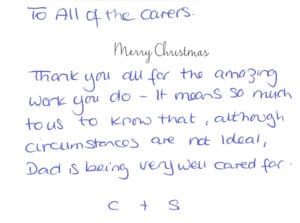 To All of the carers.
Merry Christmas
Thank you all for the amazing
work you do - It means so much
to us to know that, although
circumstances are not Ideal,
Dad is being very well cared for.
C + S